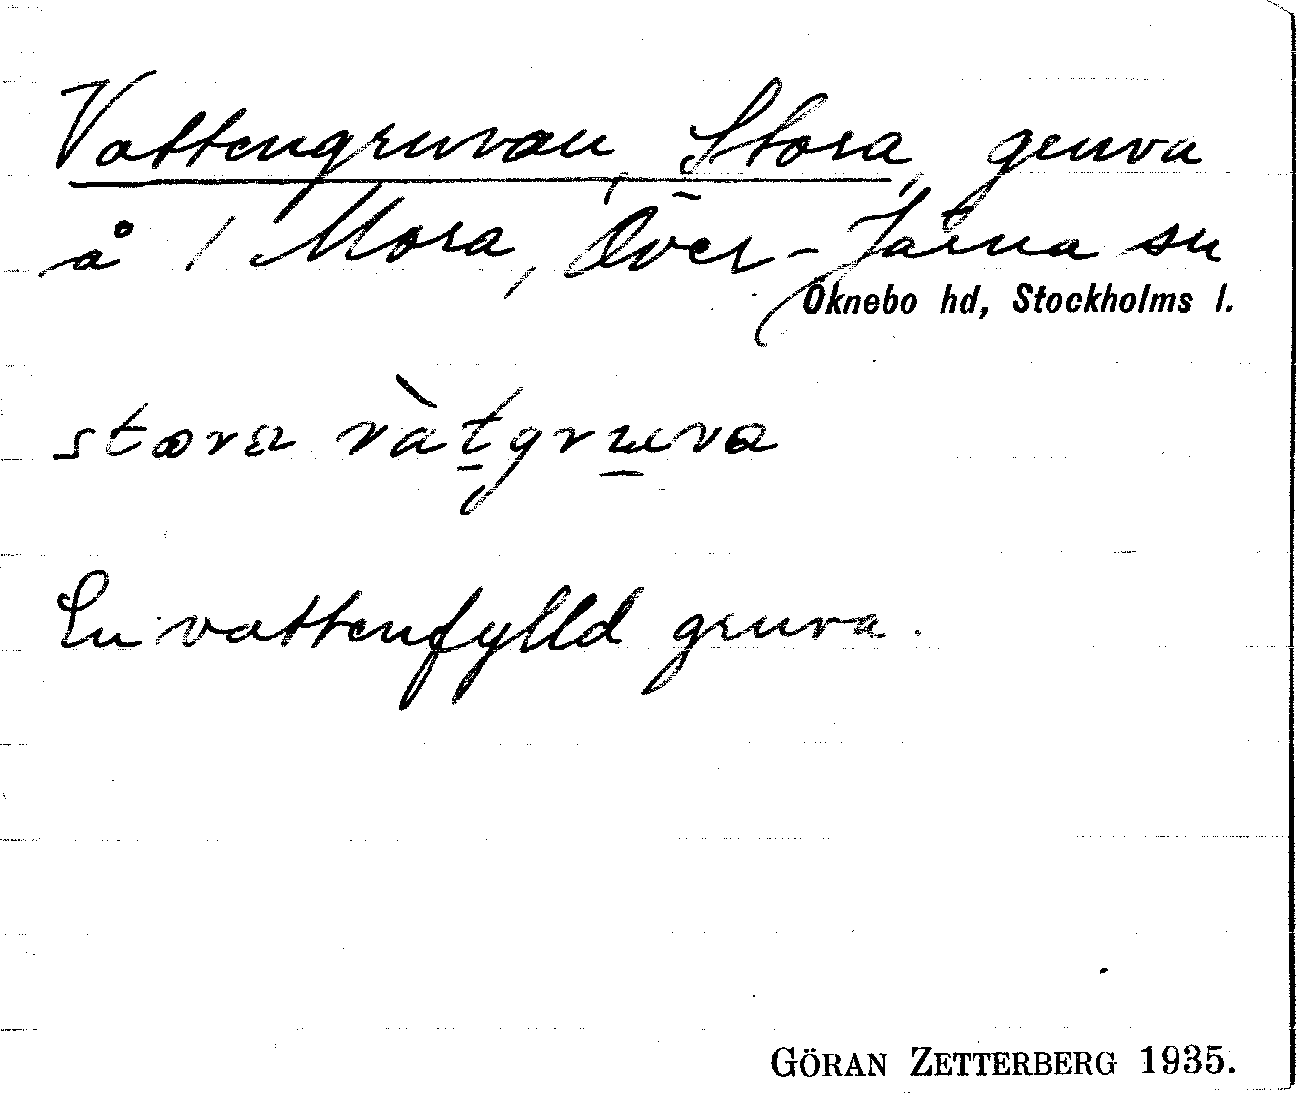 Vattengruvan, Stora, gruva
å 1 Mora, Över-Järna sn
Öknebo hd, Stockholms l.
En vattenfylld gruva.
GÖRAN ZETTERBERG 1935.